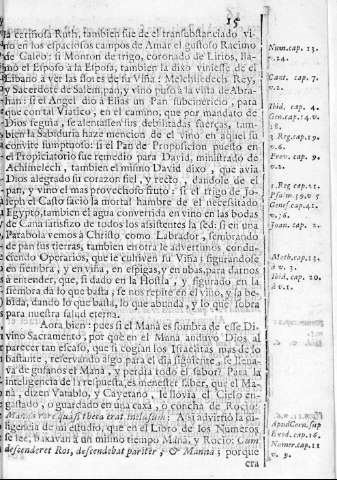 15
la cerifosa Ruth, tambien fue de el transubstanciado vi-
no en los espaciosos campos de Amar el gustoso Racimo
de Caleb: si Monton de trigo, coronado de Lirios, lla-
mò el Esposo a la Esposa, tambien la dixo viniesse de el
Libano à ver las flores de su Viña: Melchisedech Rey,
y Sacerdote de Salem, pan, y vino puso à la vista de Abra-
han: si el Angel diò a Elias un Pan subcinericio, para
que con tal Viatico, en el camino, que por mandato de
Dios seguia, se alentassen sus debilitadas fuerças, tam-
bien la Sabiduria haze mencion de el vino en aquel su
convite sumptuoso: si el Pan de Proposicion puesto en
el Propiciatorio fue remedio para David, ministrado de
Achimelech, tambien el mismo David dixo, que avia
Dios alegrado su corazon fiel, y recto, dandole de el
pan, y vino el mas provechoso fruto: si el trigo de Jo-
seph el Casto faciò la mortal hambre de el necesitado
Egypto, tambien el agua convertida en vino en las bodas
de Canà satisfizo de todos los assistentes la sed: si en una
Parabola vemos à Christo como Labrador, sembrando
de pan sus tierras, tambien en otra le advertimos condu-
ciendo Operarios, que le cultiven su Viña; figurandose
en siembra, y en viña, en espigas, y en ubas, para darnos
à entender, que, si dado en la Hostia, y figurado en la
siembra dà lo que basta, se nos repite en el vino, y la be-
bida, dando lo que basta, lo que abunda, y lo que sobra
para nuestra salud eterna.
Aora bien: pues si el Manà es sombra de esse Di-
vino Sacramento, por què en el Manà anduvo Dios al
parecer tan escaso, que si cogian los Israelitas mas de lo
bastante, reservando algo para el dia siguiente, se llena-
va de gusanos el Manà, y perdia todo el sabor? Para la
inteligencia de la respuesta, es menester saber, que el Ma-
nà, dizen Vatablo, y Cayetano, se llovia el Cielo en-
gastado, o guardado en una caxa, o concha de Rocio:
Manna rore quasi theca erat inclusum: Assi advirtiò la di-
ligencia de mi estudio, que en el Libro de los Numeros
se lee, baxavan à un mismo tiempo Manà, y Rocio: Cum
descenderet Ros, descendebat pariter, & Manna; porque
era
Num. cap. 13.
v. 24.
Cant. cap. 7.
v. 2.
Ibid. cap. 4.
Gen. cap. 14. v.
18.
3. Reg. cap. 19.
v. 6.
Prov. cap. 9.
v. 2.
1. Reg. cap. 21.
Genes. cap. 41.
Joan. cap. 2.
Math. cap. 13.
à v. 3.
Ibid. cap. 20.
à v. 1.
Apud Corn. sup
Exod. cap. 16.
Numer. cap. 11
v. 9.